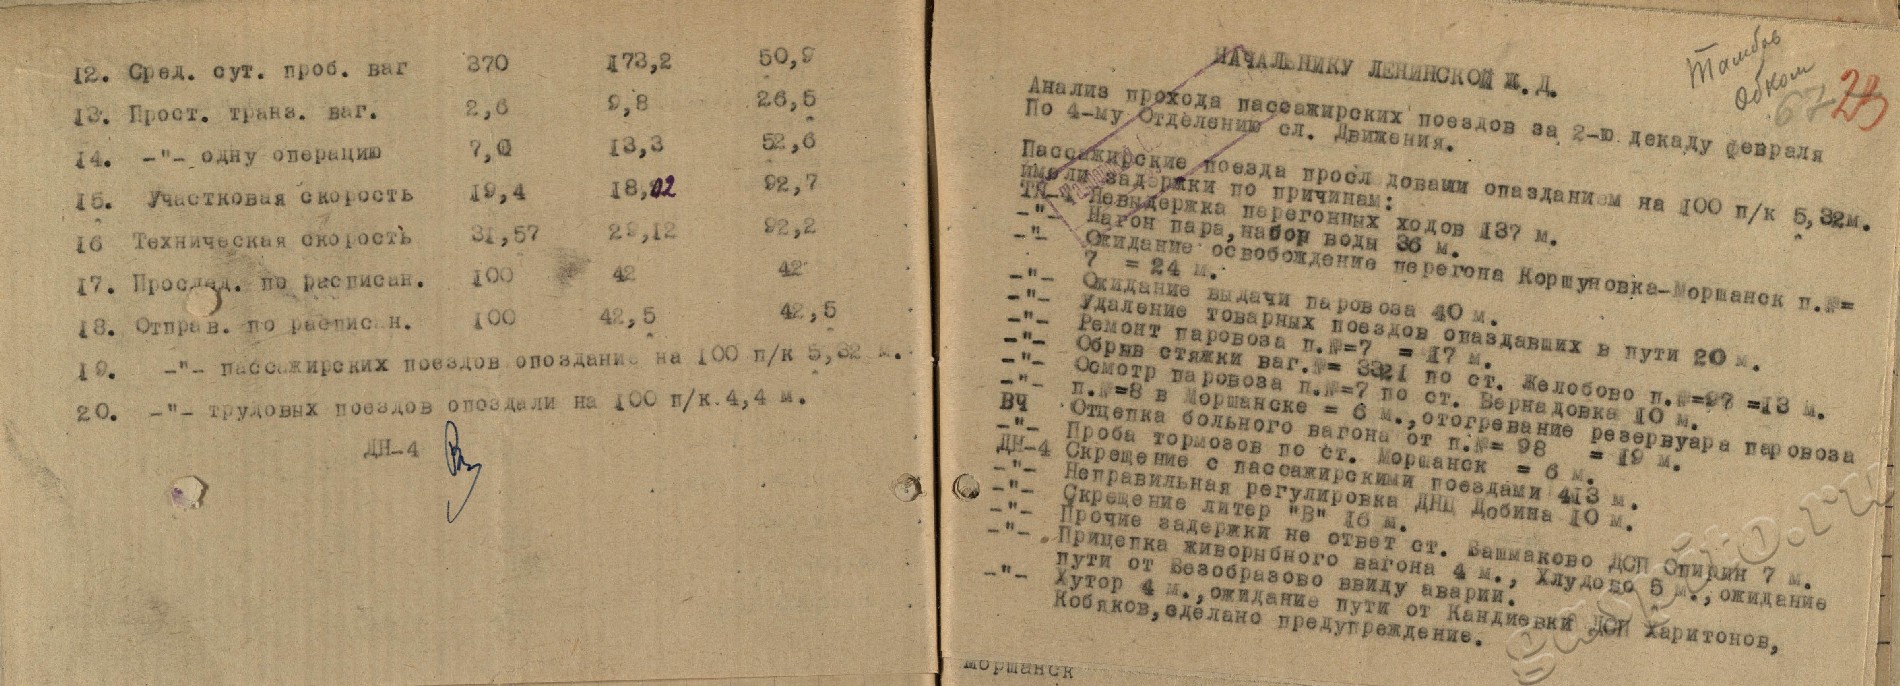 12. Сред. сут. проб. ваг 370 173,2 50,9
13. Прост. транз. ваг. 2,6 9,8 26,5
14. -"- одну операцию 7,0 13,3 52,6
15. Участковая скорость 19,4 18,02 92,7
16 Техническая скорость 31,57 29,12 92,2
17. Прослед. по расписан. 100 42 42
18. Отправ. по расписан. 100 42,5 42,5
19. -"- пассажирских поездов опоздание на 100 п/к 5,32 м.
20. -"- трудовых поездов опоздали на 100 п/к.4,4 м.
ДН-4
Тамбов
Обком
67 23
НАЧАЛЬНИКУ ЛЕНИНСКОЙ Ж.Д.
Анализ прохода пассажирских поездов за 2-ю декаду февраля
По 4-му Отделению сл. Движения.
Пассажирские поезда просл довали опазданием на 100 п/к 5,32м.
имели задержки по причинам:
ТЧ-4 Невыдержка перегонных ходов 137 м.
-"- Нагон пара,набор воды 36 м.
-"- Ожидание освобождение перегона Коршуновка-Моршанск п.№=
7 = 24 м.
-"- Ожидание выдачи паровоза 40 м.
-"- Удаление товарных поездов опаздавших в пути 20 м.
-"- Ремонт паровоза п.№=7 = 17 м.
-"- Обрыв стяжки ваг.№= 3321 по ст. Желобово п.№=97 =13 м.
-"- Осмотр паровоза п.№=7 по ст. Вернадовка 10 м.
-"- п.№=8 в Моршанске = 6 м.,отогревание резервуара паровоза
ВЧ Отцепка больного вагона от п.№= 98 = 19 м.
-"- Проба тормозов по ст. Моршанск = 6 м.
ДН-4 Скрещение с пассажирскими поездами 413 м.
-"- Неправильная регулировка ДНЦ Добина 10 м.
-"- Скрещение литер "В" 16 м.
-"- Прочие задержки не ответ ст. Башмаково ДСП Спирин 7 м.
-"- Прицепка живорыбного вагона 4 м., Хлудово 5 м.,ожидание
пути от Безобразово ввиду аварии.
-"- Хутор 4 м.,ожидание пути от Кандиевки ДСП Харитонов,
Кобяков,сделано предупреждение.
Моршанск
gaspito.ru